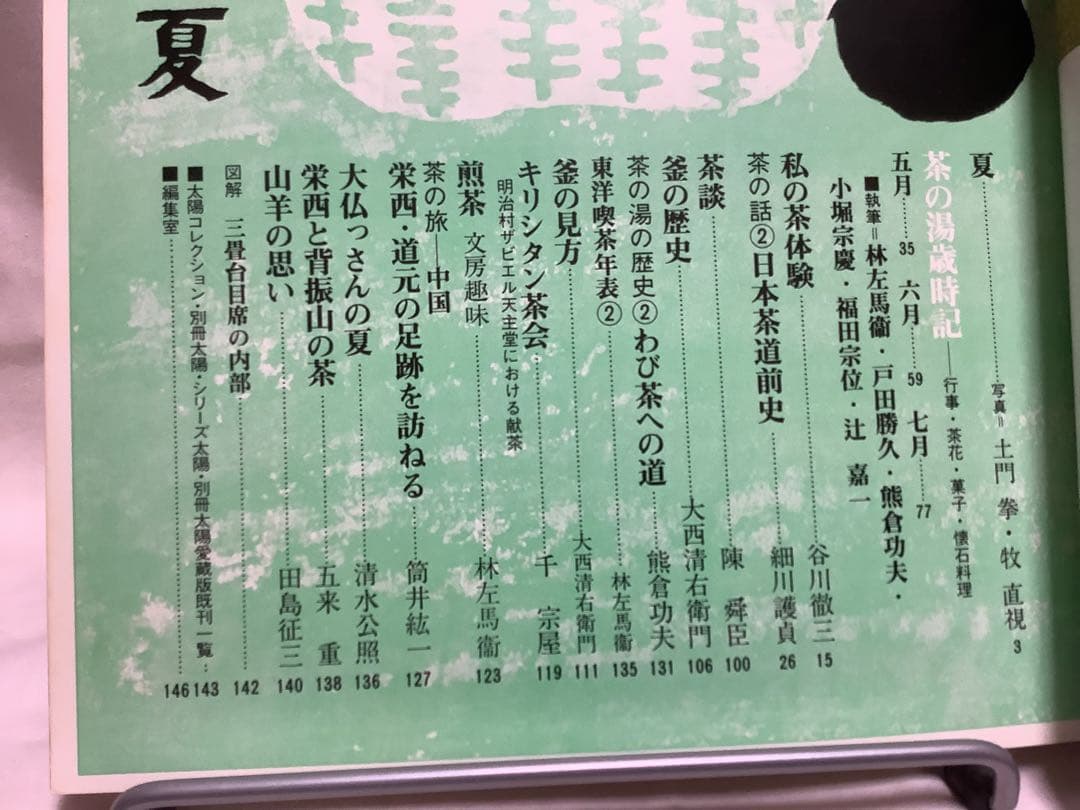 夏
夏 写真＝土門 拳・牧 直視 3
茶の湯歳時記——行事・茶花・菓子・懐石料理
五月 35 六月 59 七月 77
■執筆＝林左馬衞・戸田勝久・熊倉功夫・
小堀宗慶・福田宗位・辻 嘉一
私の茶体験 谷川徹三 15
茶の話②日本茶道前史 細川護貞 26
茶談 陳 舜臣 100
釜の歴史 大西清右衛門 106
茶の湯の歴史②わび茶への道 熊倉功夫 131
東洋喫茶年表② 林左馬衞 135
釜の見方 大西清右衛門 111
キリシタン茶会 千 宗屋 119
明治村ザビエル天主堂における献茶
煎茶 文房趣味 林左馬衞 123
茶の旅——中国
栄西・道元の足跡を訪ねる 筒井紘一 127
大仏っさんの夏 清水公照 136
栄西と背振山の茶 五来 重 138
山羊の思い 田島征三 140
図解 三畳台目席の内部 142
■太陽コレクション・別冊太陽・シリーズ太陽・別冊太陽愛蔵版既刊一覧 143
■編集室 146